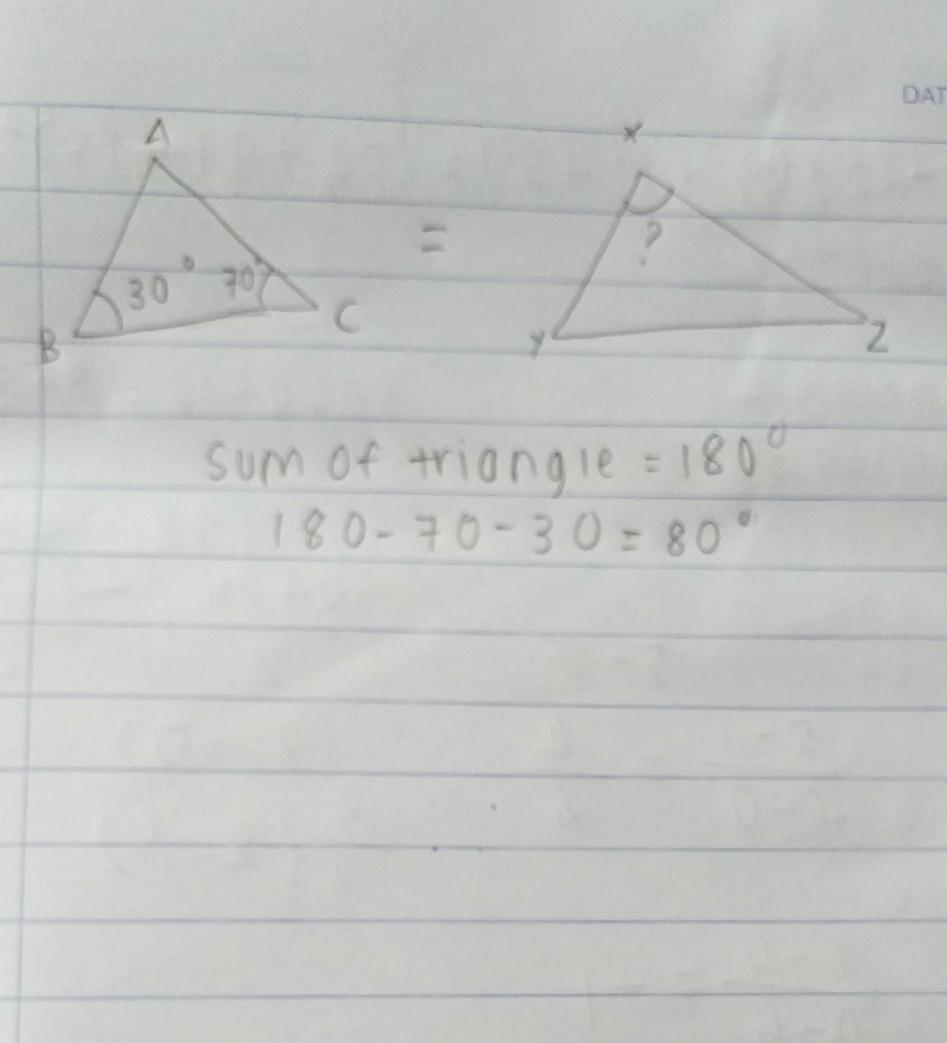 DAT
A
X
=
?
30° 70°
B
C
Y
Z
sum of triangle = 180°
180 - 70 - 30 = 80°